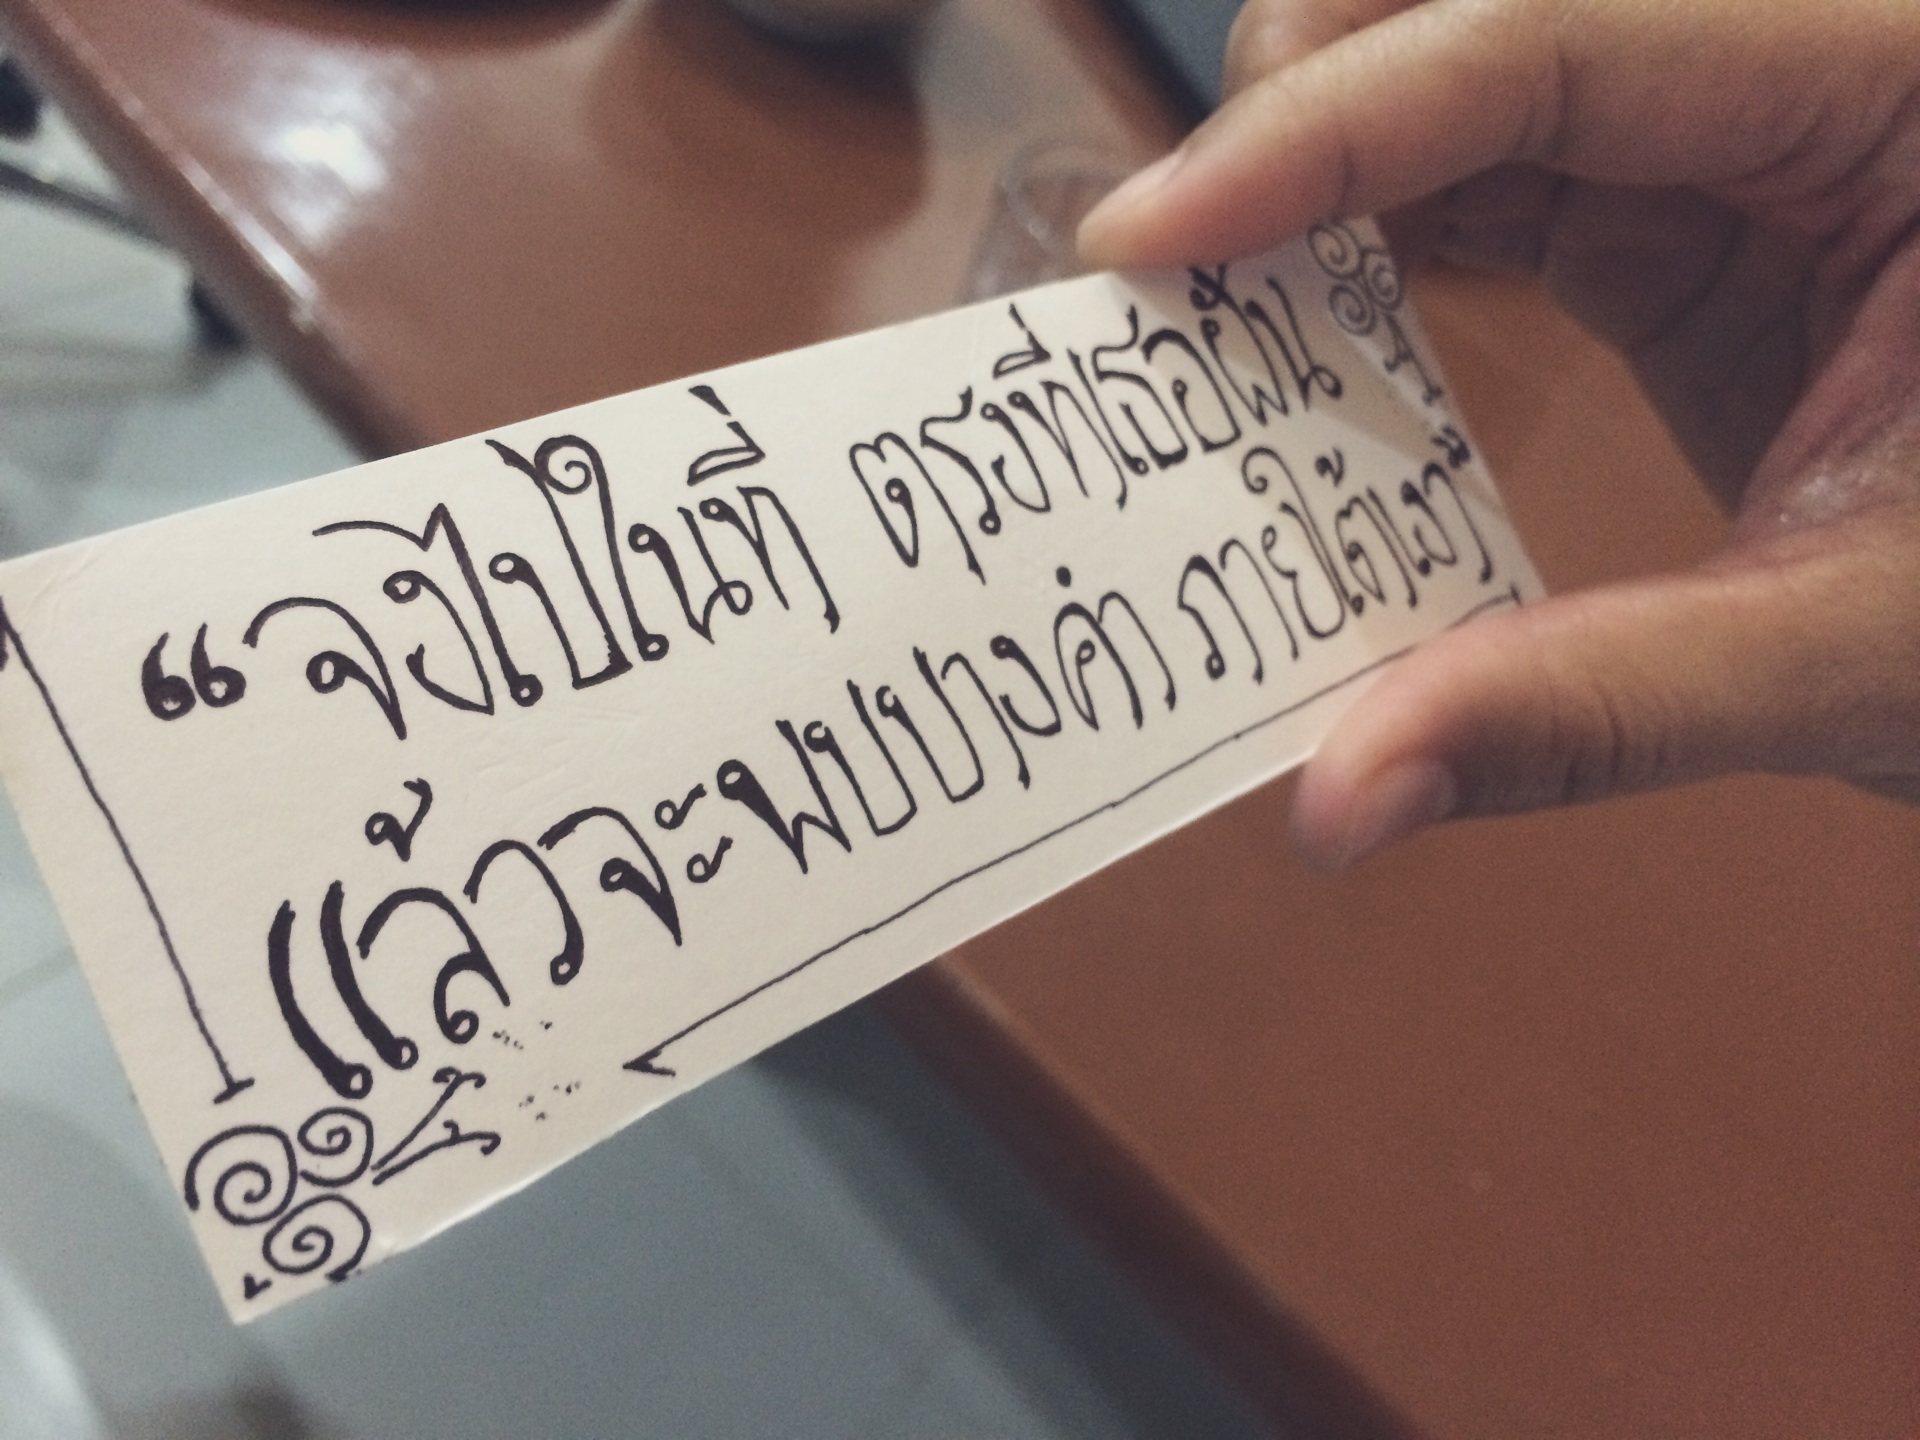 “จงไปในที่ ตรงที่เธอฝัน
แล้วจะพบบางคำ ภายใต้เงา”